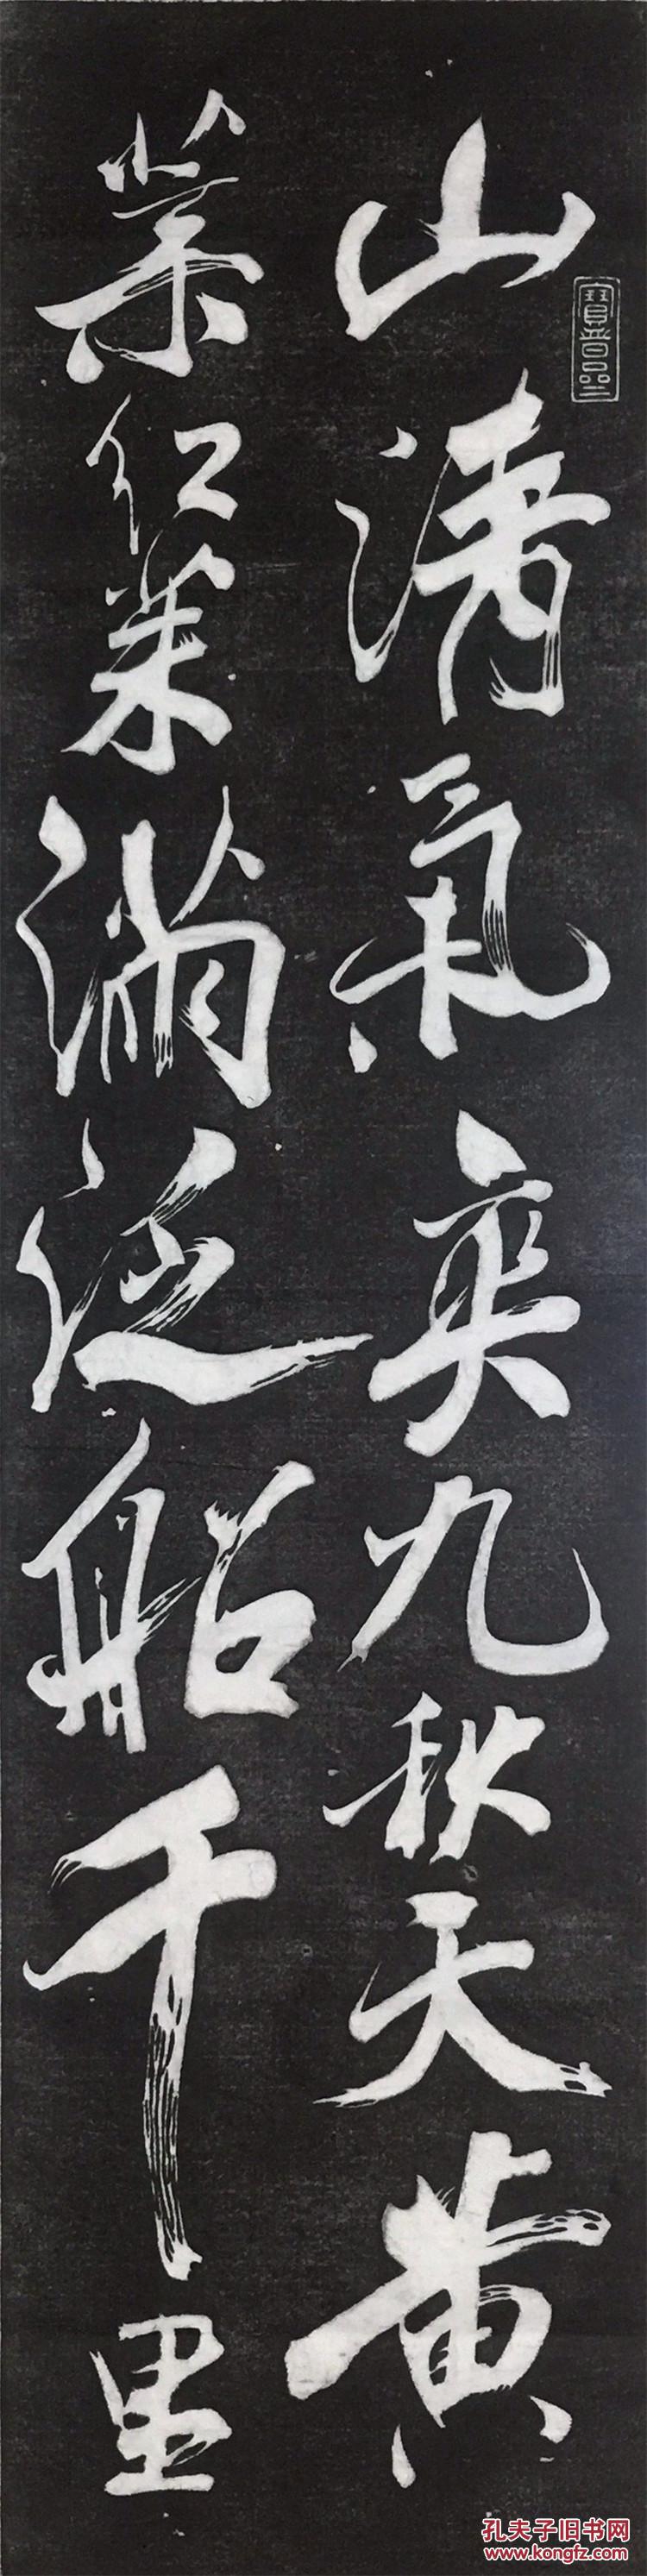 山清氣爽九秋天黄
菊红茱满泛船千里
孔夫子旧书网
www.kongfz.com